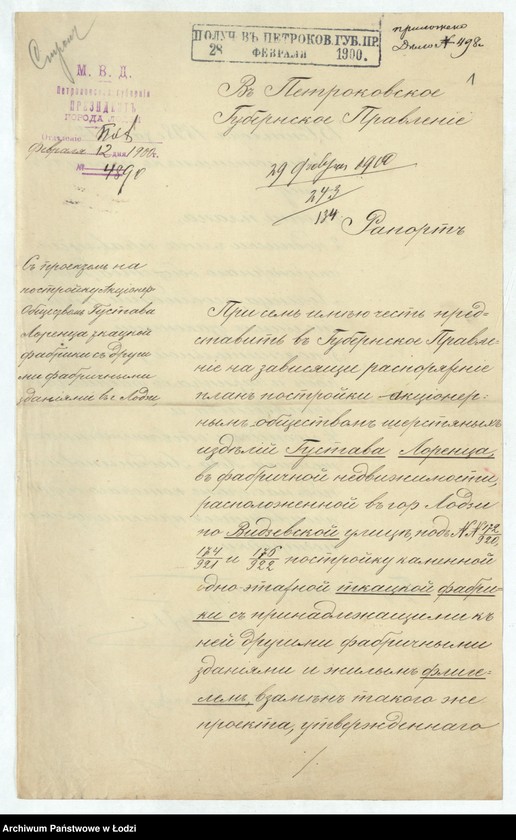 Строит
ПОЛУЧ. ВЪ ПЕТРОКОВ. ГУБ. ПР.
28 ФЕВРАЛЯ 1900.
приложено
Дѣло № 498
1
М. В. Д.
Петроковской губерніи
ПРЕЗИДЕНТЪ
ГОРОДА
Отдѣленіе
Февраля 12 дня 1900 г.
№ 4890
Въ Петроковское
Губернское Правленіе
29 февраля 1900
243
134
Рапортъ
Съ проектомъ на
постройку Акціонер.
Обществомъ Густава
Лоренца ткацкой
фабрики съ други
ми фабричными
зданіями въ г. Лодзи,
При семъ имѣю честь пред-
ставить въ Губернское Правле-
ніе на зависящее распоряженіе
планъ постройки акціонер-
нымъ обществомъ шерстяныхъ
издѣлій Густава Лоренца,
въ фабричной недвижимости,
расположенной въ гор. Лодзи
по Видзевской улицѣ, подъ №№ 172/920,
174/921 и 176/922 постройку каменной
одно-этажной ткацкой фабри-
ки съ принадлежащими къ
ней другими фабричными
зданіями и жилымъ флиге-
лемъ, взамѣнъ такого же
проекта, утвержденнаго
Archiwum Państwowe w Łodzi